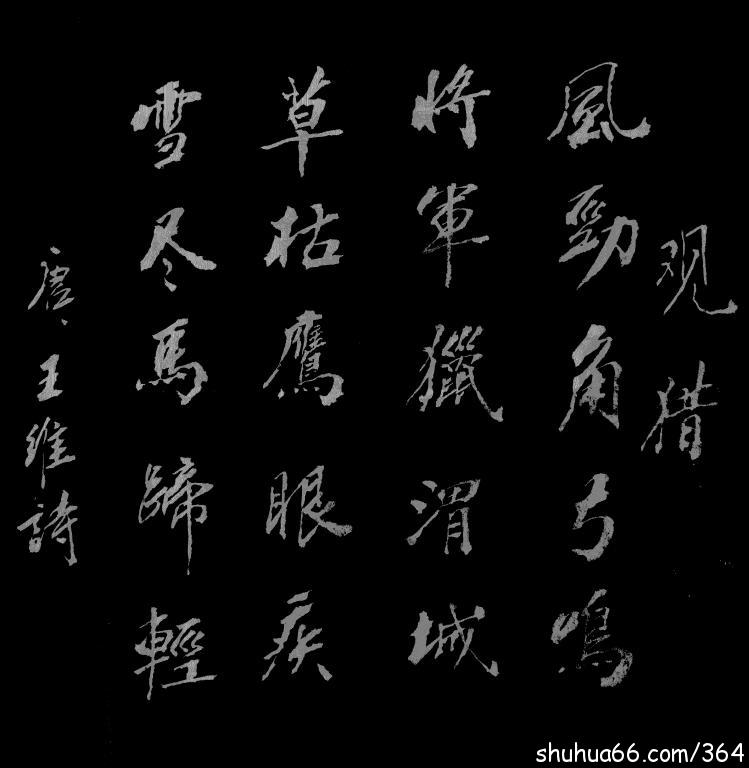 观猎
風勁角弓鳴
将軍獵渭城
草枯鷹眼疾
雪尽馬蹄輕
唐王维詩
shuhua66.com/364